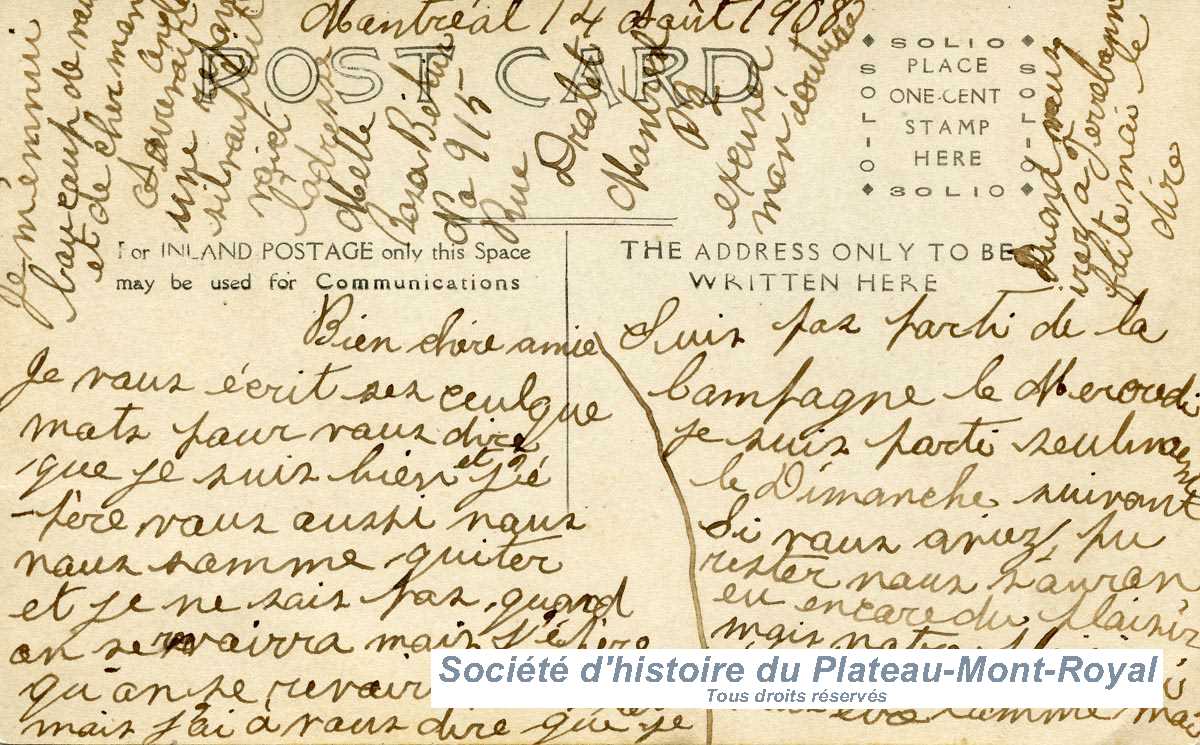 Montréal 14 Août 1908
POST CARD
SOLIO
SOLIO
SOLIO
SOLIO
PLACE
ONE-CENT
STAMP
HERE
For INLAND POSTAGE only this Space
may be used for Communications
THE ADDRESS ONLY TO BE
WRITTEN HERE
Bien chère amie
Je vous écrit ses quelque
mots pour vous dire
que je suis bien et j'é
-père vous aussi nous
nous somme quiter
et je ne sais pas quand
on se revoirra mais j'éspère
qu'on se revoir
mais j'ai à vous dire que je
Suis pas parti de la
Campagne le Mercredi
je suis parti seulmaent
le Dimanche suivant
Si vous aviez pu
rester nous s'auron
eu encore du plaisir
mais notre
comme moi
Je m'ennui
baucoup de vous
et de cher man
ange
J'aurai
une
silvouplait
voici
l'adresse
Melle
Rosa
No 915
Rue
Drolet
Montreal
P2
excusez
mon écouture
quand vous
irez a Terrebonne
fdite mai le
dire
Société d'histoire du Plateau-Mont-Royal
Tous droits réservés